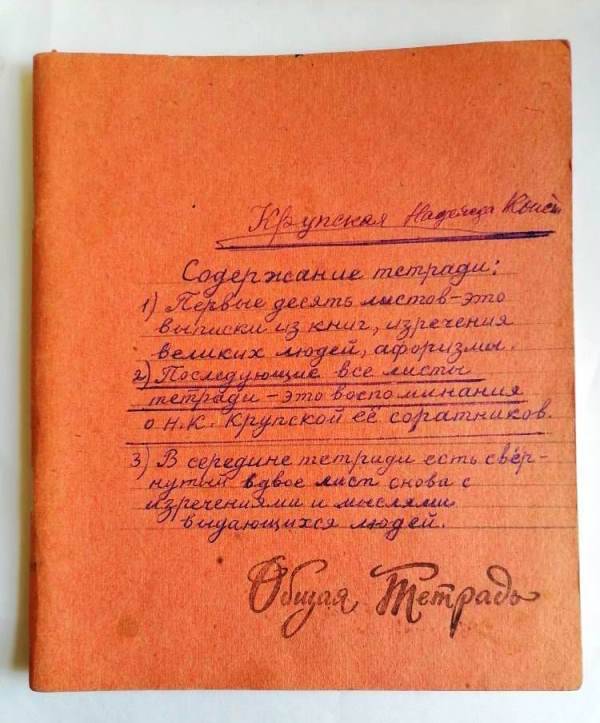 Крупская Надежда Конст
Содержание тетради:
1) Первые десять листов - это
выписки из книг, изречения
великих людей, афоризмы.
2) Последующие все листы
тетради - это воспоминания
о Н.К. Крупской её соратников.
3) В середине тетради есть свёр-
нутый вдвое лист снова с
изречениями и мыслями
выдающихся людей.
Общая Тетрадь